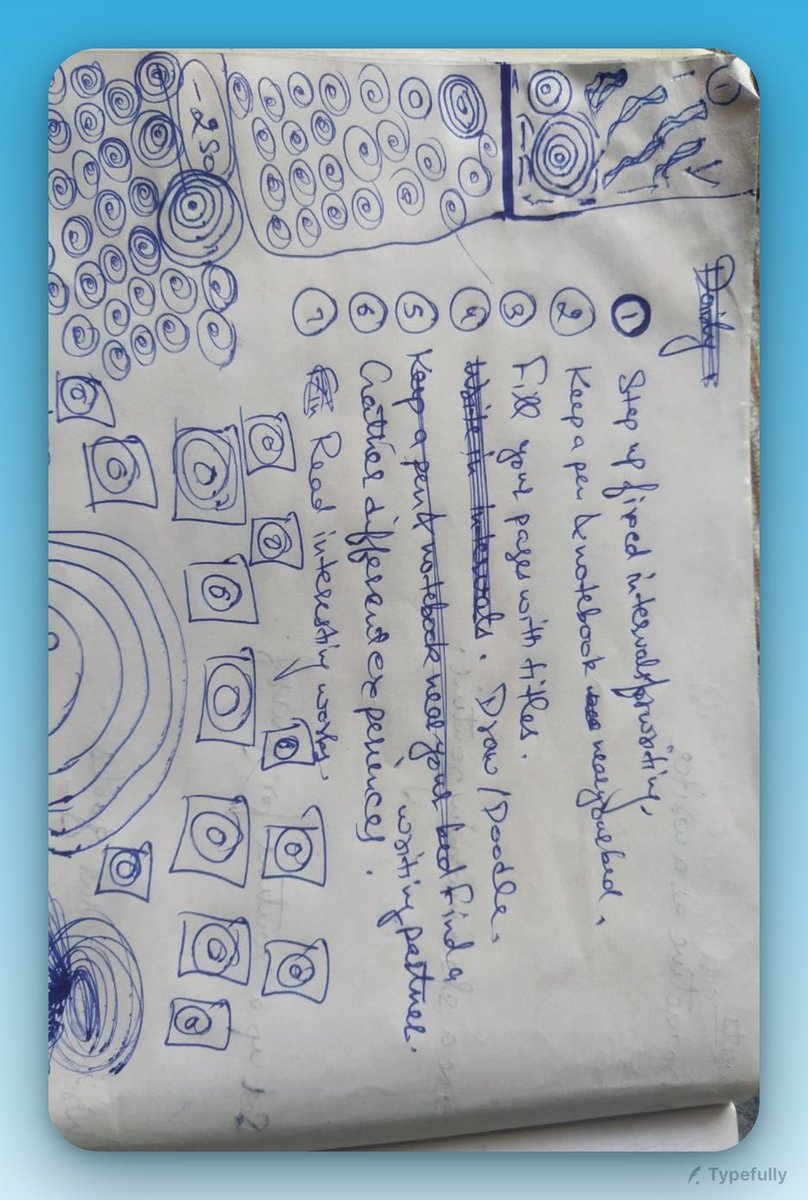 1
-250
Daily
① Step up fixed intervals for writing.
② Keep a pen & notebook near your bed.
③ Fill your pages with titles.
④ Write in intervals. Draw/Doodle.
⑤ Keep a pen & notebook near your bed Find a
writing partner.
⑥ Gather different experiences.
⑦ Read interesting works.
Typefully